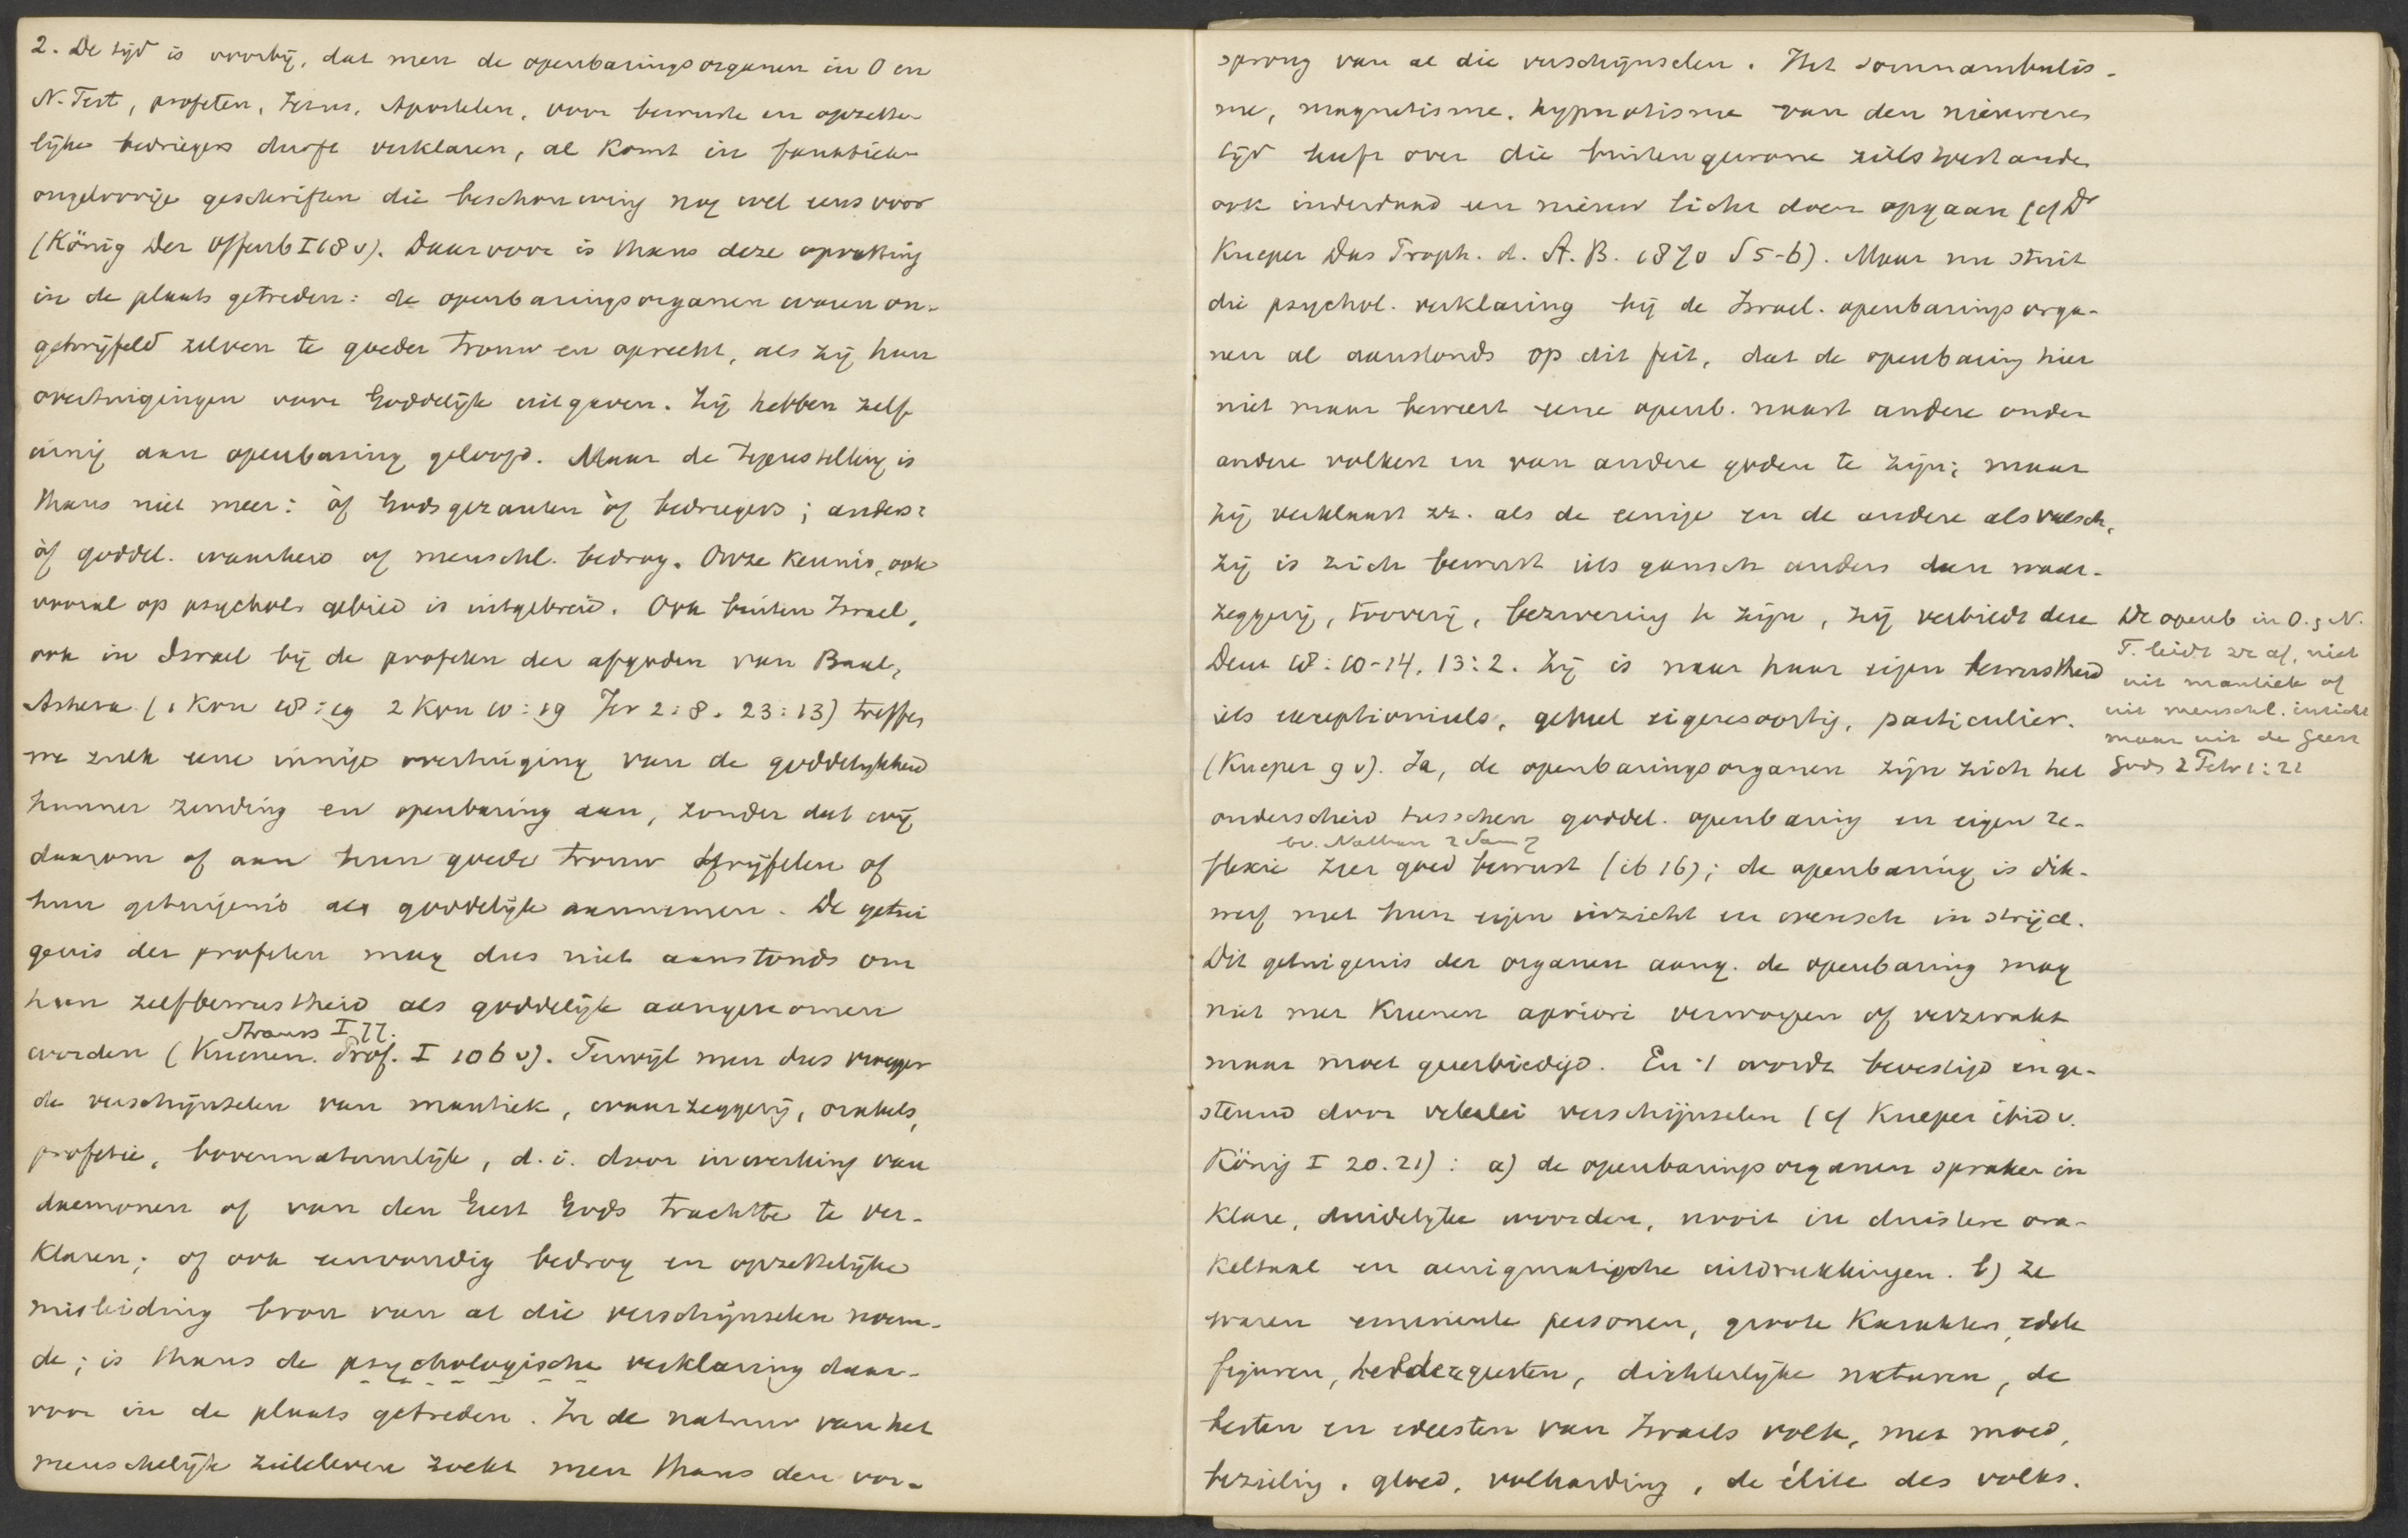 2. De tijd is voorbij, dat men de openbaringsorganen in O en
N. Test, profeten, Jezus, Apostelen, voor bewuste en opzette-
lijke bedriegers durft verklaren, al komt in fanatieke
ongeloovige geschriften die beschouwing nog wel eens voor
(König Der Offenb I 68 v). Daarvoor is thans deze opvatting
in de plaats getreden: de openbaringsorganen waren on-
getwijfeld zelven te goeder trouw en oprecht, als zij hun
overtuigingen voor Goddelijk uitgaven. Zij hebben zelf
innig aan openbaring geloofd. Maar de tegenstelling is
thans niet meer: òf Godsgezanten òf bedriegers; anders:
òf goddel. waarheid of menschl. bedrog. Onze kennis, ook
vooral op psychol. gebied is uitgebreid. Ook buiten Israel,
ook in Israel bij de profeten der afgoden van Baal,
Ashera (1 Kon 18:19 2 Kon 10:19 Jer 2:8. 23:13) treffen
we zulk eene innige overtuiging van de goddelijkheid
hunner zending en openbaring aan, zonder dat wij
daarom of aan hun goede trouw twijfelen of
hun getuigenis als goddelijk aannemen. De getui
genis der profeten mag dus niet aanstonds om
hun zelfbewustheid als goddelijk aangenomen
Strauss I 77.
worden (Kuenen. Prof. I 106 v). Terwijl men dus vroeger
de verschijnselen van mantiek, waarzeggerij, orakels,
profetie, bovennatuurlijk, d.i. door inwerking van
daemonen of van den Geest Gods trachtte te ver-
klaren; of ook eenvoudig bedrog en opzettelijke
misleiding bron van al die verschijnselen noem-
de; is thans de psychologische verklaring daar-
voor in de plaats getreden. In de natuur van het
menschelijk zieleleven zoekt men thans den oor-
sprong van al die verschijnselen. Het somnambulis-
me, magnetisme, hypnotisme van den nieuweren
tijd heeft over die buitengewone zielstoestanden
ook inderdaad een nieuw licht doen opgaan (cf Dr
Kueper Das Proph. d. A. B. 1870 S 5-6). Maar nu stuit
die psychol. verklaring bij de Israel. openbaringsorga-
nen al aanstonds op dit feit, dat de openbaring hier
niet maar beweert eene openb. naast andere onder
andere volken en van andere goden te zijn; maar
zij verklaart zz. als de eenige en de andere als valsch,
zij is zich bewust iets gansch anders dan waar-
zeggerij, tooverij, bezwering te zijn, zij verbiedt deze
Deut 18:10-14. 13:2. Zij is naar haar eigen bewustheid
iets exceptioneels, geheel eigensoortig, particulier.
(Kueper 9 v). Ja, de openbaringsorganen zijn zich het
onderscheid tusschen goddel. openbaring en eigen re-
bv. Nathan 2 Sam 7
flexie zeer goed bewust (ib 16); de openbaring is dik-
werf met hun eigen inzicht en wensch in strijd.
Dit getuigenis der organen aang. de openbaring mag
niet met Kuenen apriori verworpen of verzwakt
maar moet geeerbiedigd. En 't wordt bevestigd en ge-
steund door velerlei verschijnselen (cf Kueper ibid v.
König I 20.21): a) de openbaringsorganen spraken in
klare, duidelijke woorden, nooit in duistere ora-
keltaal en aenigmatische uitdrukkingen. b) ze
waren eminente personen, groote karakters, edele
figuren, heldere geesten, dichterlijke naturen, de
besten en edelsten van Israels volk, met moed,
bezieling, gloed, volharding, de élite des volks.
De openb in O. & N.
T. leidt zz af, niet
uit mantiek of
uit menschl. inzicht
maar uit de Geest
Gods 2 Petr 1:21